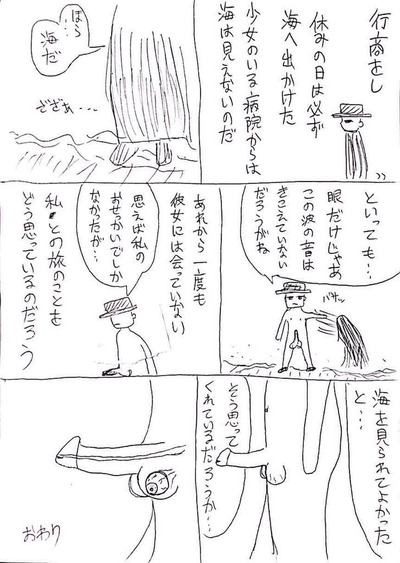 行商をし
休みの日は必ず
海へ出かけた
少女のいる病院からは
海は見えないのだ
ほら
海だ
ざざぁ・・・
といっても・・・
眼だけじゃあ
この波の音は
きこえていない
だろうがね
バサッ
あれから一度も
彼女には会っていない
思えば私の
おせっかいでしか
なかったが・・・
私との旅のことを
どう思っているのだろう
海を見られてよかった
と・・・
そう思って
くれているだろうか・・・
おわり